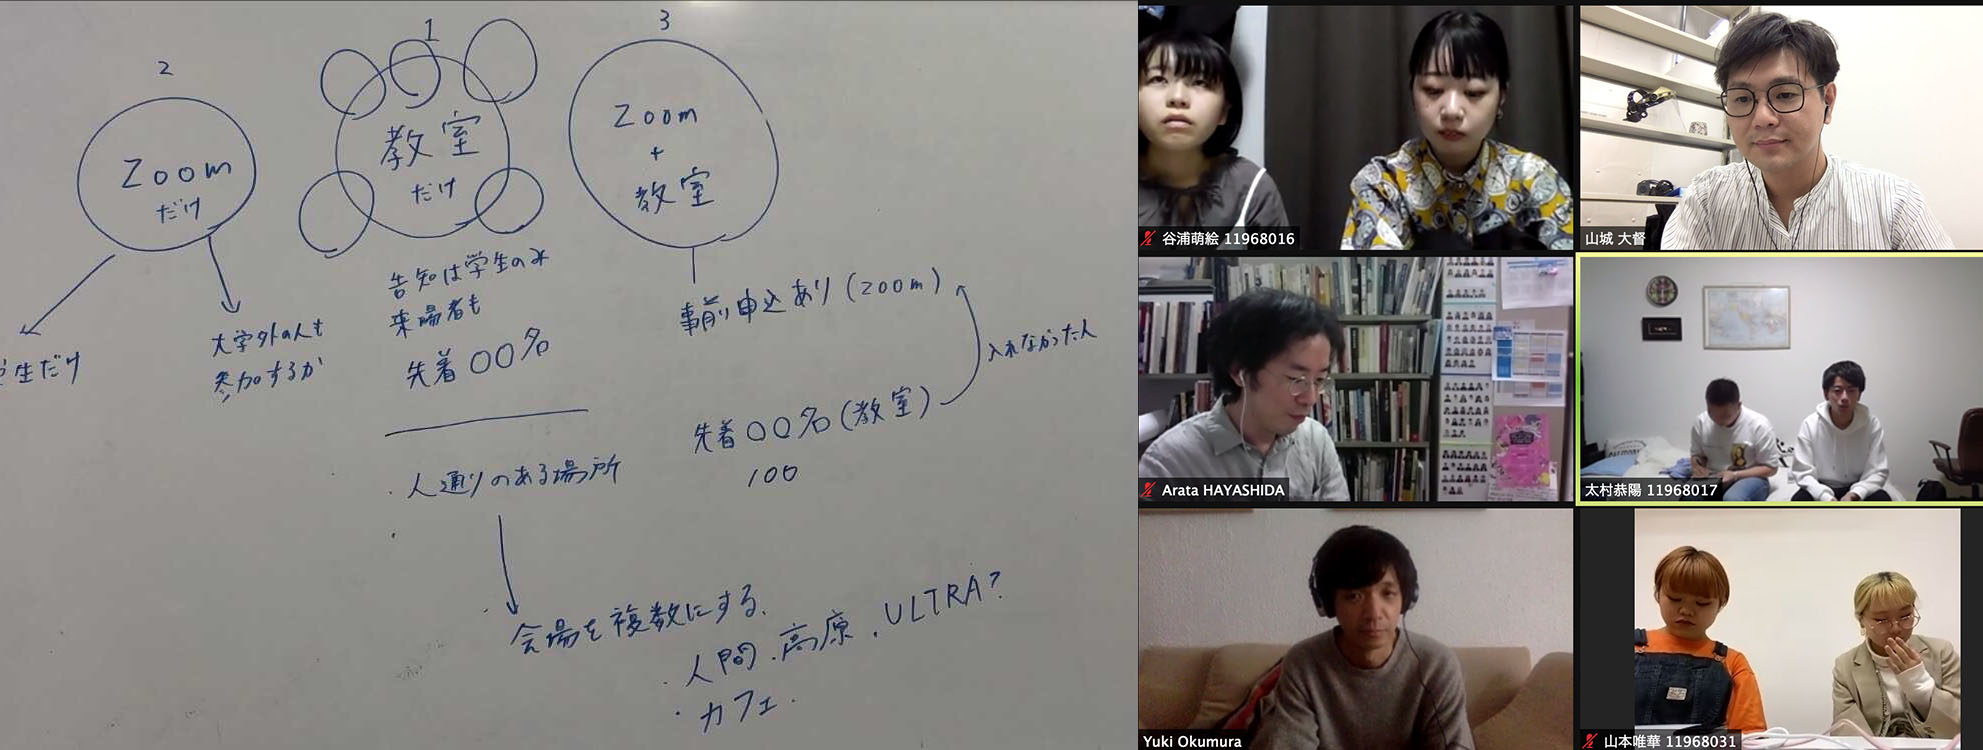 2
Zoom
だけ
生だけ
大学外の人も
参加するか
1
教室
だけ
告知は学生のみ
来場者も
先着〇〇名
・人通りのある場所
会場を複数にする.
・人間.高原.ULTRA?
・カフェ.
3
Zoom
+
教室
事前申込あり(zoom)
入れなかった人
先着〇〇名(教室)
100
谷浦萌絵 11968016
山城 大督
Arata HAYASHIDA
太村恭陽 11968017
Yuki Okumura
山本唯華 11968031